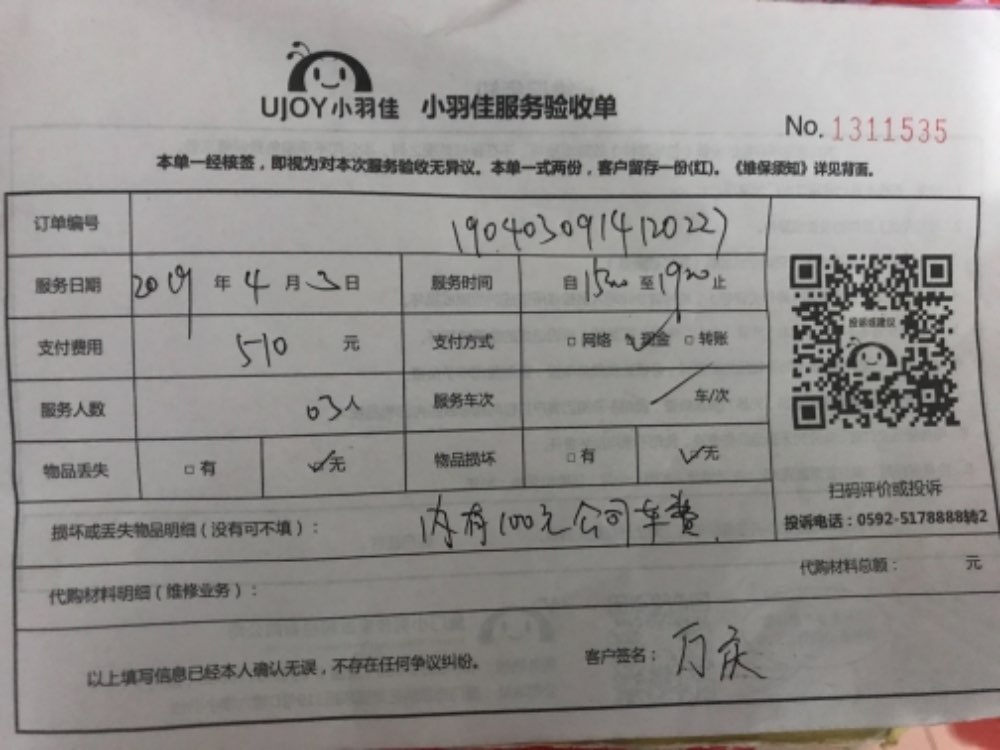 UJOY小羽佳 小羽佳服务验收单
No. 1311535
本单一经核签，即视为对本次服务验收无异议。本单一式两份，客户留存一份(红)。《维保须知》详见背面。
订单编号 1904030914120227
服务日期 2019 年 4 月 3 日 服务时间 自 15:00 至 19:00 止
支付费用 510 元 支付方式 □ 网络 ✓ 现金 □ 转账
服务人数 03 人 服务车次 / 车/次
物品丢失 □ 有 ✓ 无 物品损坏 □ 有 ✓ 无
投诉或建议
扫码评价或投诉
投诉电话：0592-5178888转2
损坏或丢失物品明细（没有可不填）： 内有100元公司车费
代购材料明细（维修业务）： 代购材料总额： 元
以上填写信息已经本人确认无误，不存在任何争议纠纷。 客户签名： 万庆